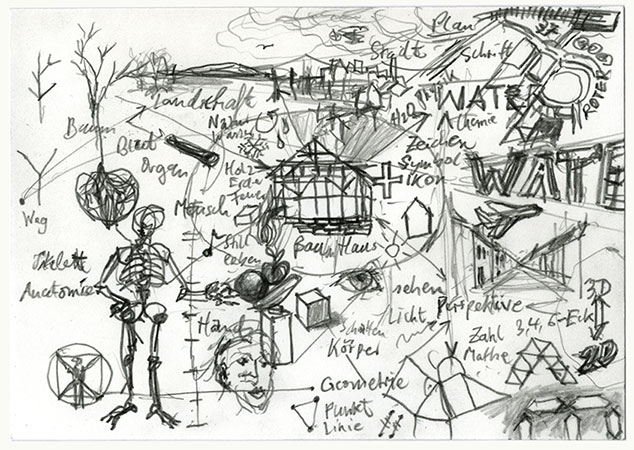 Plan
Stadt
Schrift
37
Landschaft
H2O
WATER
Chemie
ROTER
Baum
Blut
Organ
Natur
Wasser
Zeichen
Symbol
Ikon
Holz
Erde
Feuer
WATE
Weg
Mensch
Still
leben
Baum Haus
Skelett
Anatomie
sehen
Licht
Perspektive
3D
2D
Hand
Schatten
Körper
Zahl
Mathe
3,4,5-Eck
Geometrie
Punkt
Linie